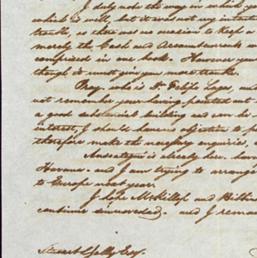 I duly note the way in which you
which is well, but it was not my intention
trouble, as there was no occasion to keep a
merely the Cash and Accounts
comprised in one book. However you
though it must give you more trouble.
Pray, who is Dn. Felipe Lages, and
not remember your having pointed out
a good substantial building and can be
interest, I should have no objection to p
therefore make the necessary enquiries, a
is already here, hav
Havana. and I am trying to arrange
to Europe next year.
I hope McKillop and
continue unmoved. and I remain